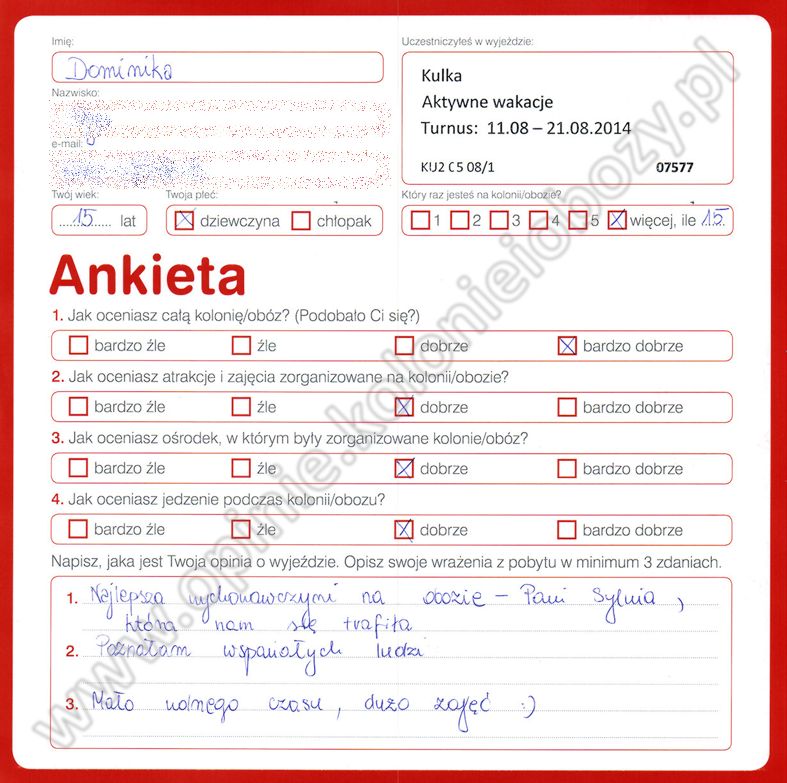 Imię:
Dominika
Nazwisko:
e-mail:
Twój wiek:
15 lat
Twoja płeć:
dziewczyna chłopak
Uczestniczyłeś w wyjeździe:
Kulka
Aktywne wakacje
Turnus: 11.08 – 21.08.2014
KU2 C5 08/1 07577
Który raz jesteś na kolonii/obozie?
1 2 3 4 5 więcej, ile 15.
Ankieta
1. Jak oceniasz całą kolonię/obóz? (Podobało Ci się?)
bardzo źle źle dobrze bardzo dobrze
2. Jak oceniasz atrakcje i zajęcia zorganizowane na kolonii/obozie?
bardzo źle źle dobrze bardzo dobrze
3. Jak oceniasz ośrodek, w którym były zorganizowane kolonie/obóz?
bardzo źle źle dobrze bardzo dobrze
4. Jak oceniasz jedzenie podczas kolonii/obozu?
bardzo źle źle dobrze bardzo dobrze
Napisz, jaka jest Twoja opinia o wyjeździe. Opisz swoje wrażenia z pobytu w minimum 3 zdaniach.
1. Najlepsza wychowawczyni na obozie – Pani Sylwia,
która nam się trafiła
2. Poznałam wspaniałych ludzi
3. Mało wolnego czasu, dużo zajęć :)
www.opinie.kolonieiobozy.pl